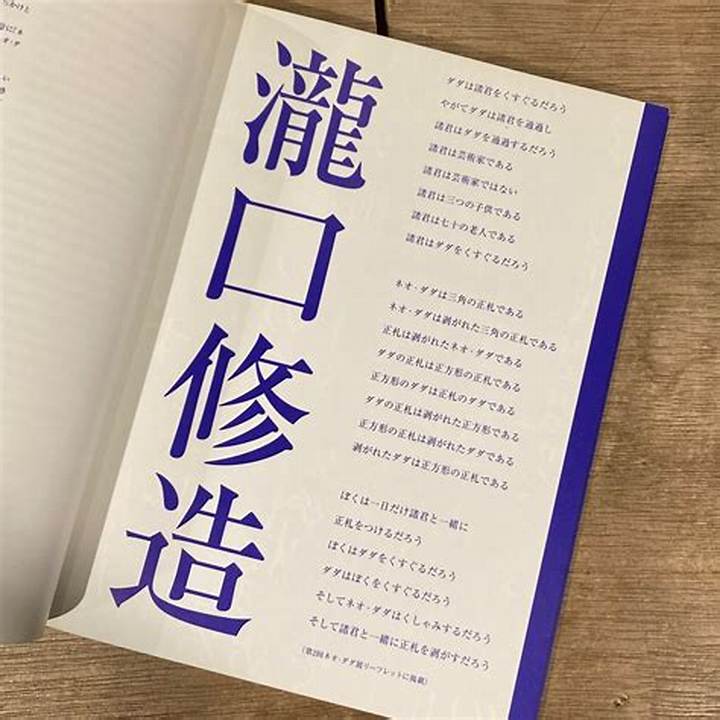 瀧口修造
ダダは諸君をくすぐるだろう
やがてダダは諸君を通過し
諸君はダダを通過するだろう
諸君は芸術家である
諸君は芸術家ではない
諸君は三つの子供である
諸君は七十の老人である
諸君はダダをくすぐるだろう
ネオ・ダダは三角の正札である
ネオ・ダダは剥がれた三角の正札である
正札は剥がれたネオ・ダダである
ダダの正札は正方形の正札である
正方形のダダは正札のダダである
ダダの正札は剥がれた正方形である
正方形の正札は剥がれたダダである
剥がれたダダは正方形の正札である
ぼくは一日だけ諸君と一緒に
正札をつけるだろう
ぼくはダダをくすぐるだろう
ダダはぼくをくすぐるだろう
そしてネオ・ダダはくしゃみするだろう
そして諸君と一緒に正札を剥がすだろう
（第2回ネオ・ダダ展リーフレットに掲載）